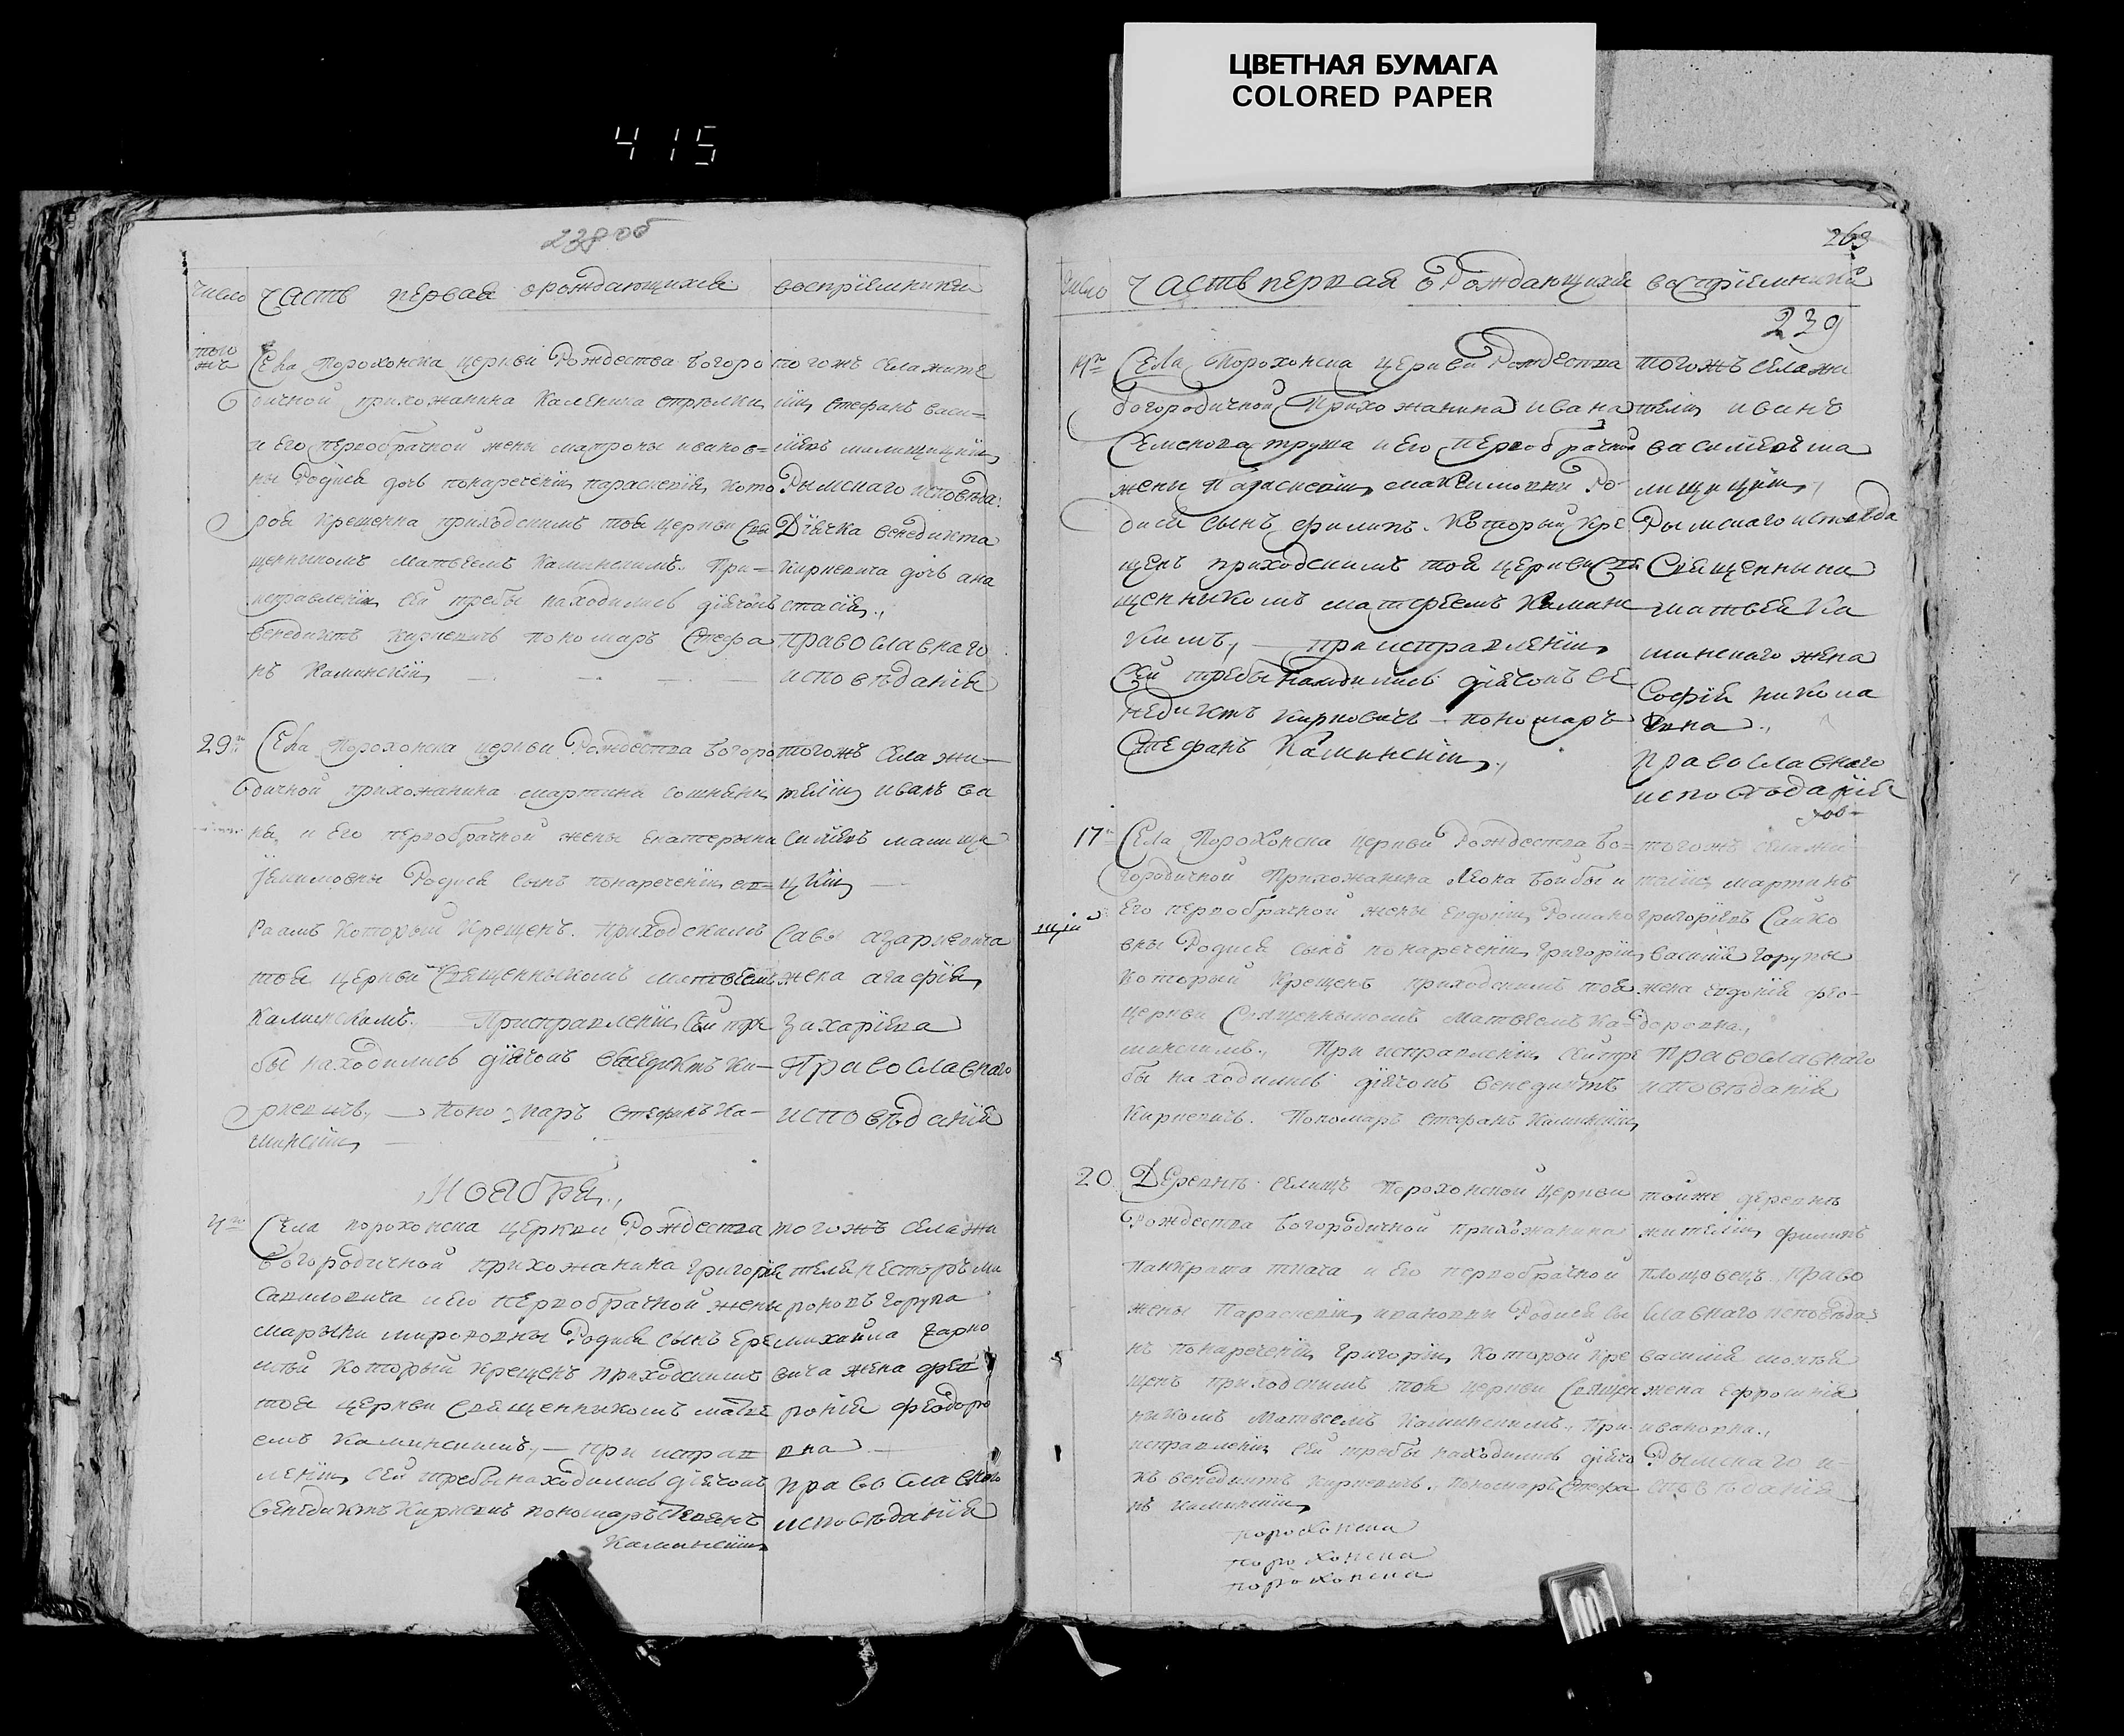 ЦВЕТНАЯ БУМАГА
COLORED PAPER
415
238 об
число часть первая о рождающихся воспріемники
того жъ
Села Порохонска церкви Рождества Богоро
дичной прихожанина Каленика стрелки
и Его первобрачной жены матроны иванов=
ны Родися дочь понаречении параскевія, кото
рая крещенна приходскимъ тоя церкви Свя
щенныкомъ Матвеемъ Каминскимъ. При=
исправленіи сей требы находились діячокъ
венедиктъ кирневичъ пономаръ Стефа
нъ Каминскій
тогожъ села жите
ліи стефанъ васи=
Рымскаго исповѣда.
Діячка венедикта
Кирневича дочь ана
стасія.,
православнаго
исповѣданія
29 Села Порохонска церкви Рождества Богоро
дичной прихожанина мартина
и Его первобрачной жены екатерыны
Якимовны Родися сынъ понареченіи ав=
раамъ Который Крещенъ. Приходскимъ
тоя церкви Священныкомъ матвеемъ
Каминскамъ. Присправленіи Сей тре
бы находились діячокъ венедиктъ Ки=
рневичъ, — Поно=маръ стефанъ Ка=
минскій
тогожъ села жи—
теліи иванъ ва
силіевъ малищи
цкій —
Савы азаревича
жена агафія
захаріева
Православнаго
исповѣданія
Ноября.,
4 Села порохонска церкви Рождества
Богородичной прихожанина григорія
Савиловича и его первобрачной жены
марыи мироновны Родися сынъ Ере
мѣй Который Крещенъ приходскимъ
тоя церкви священныкомъ матве
емъ Каминскимъ., — при исправ
леніи сей требы находились діячокъ
венедиктъ Кирневичъ пономаръ Стефанъ
Каминскій
тогожъ села жи
теля несторъ ми
роновъ горупа
михайла
вича жена фев
ронія феодоро
вна —
православнаго
исповѣданія
263
число часть первая о Рождающихся воспріемники
239
Села Порохонска церкви Рождества
богородичной Прихожанина ивана
Семенова труша и его первобрачной
жены Параскевіи максимовни Ро=
дися сынъ филипъ. который кре
щенъ приходскимъ тоя церкви Свя
щенныкомъ матфеемъ Камин
кимъ., — при исправленіи
Сей требы находились діячокъ ве
недиктъ кирновичъ — пономаръ
Стефанъ Каминскій.,
тогожъ села жи
теліи иванъ
василіевъ ма
лищицкій.,
Рымскаго исповѣда
Священника
матвея Ка
минскаго жена
Софія никола
евна.,
православнаго
исповѣданія
17 Села Порохонска церкви Рождества Бо=
городичной Прихожанина Леона Бойбы и
Его первобрачной жены Евдокіи Романо
вны Родися сынъ понареченіи григорій
Который Крещенъ приходскимъ тоя
церкви Священныкомъ Матвеемъ Ка=
минскимъ., При исправленіи Сей тре
бы находились діячокъ венедиктъ
Кирневичъ. Пономаръ стефанъ Каминскій
тогожъ села жи
теліи мартинъ
григоріевъ Сайко
василія горупы
жена евдокія фео=
доровна.,
Православнаго
исповѣданія
20 Деревнѣ селищъ Порохонской церкви
Рождества Богородичной прихожанина
Панкрата ткача и Его первобрачной
жены Параскевіи ивановни Родися сы
нъ понареченіи григорій, Которой кре
щенъ приходскимъ тоя церкви Священ
никомъ Матвеемъ Каминскимъ., При=
исправленіи сей требы находились діячо
къ венедиктъ Кирневичъ. Пономаръ Стефа
нъ каминскій
тойже деревнѣ
жителіи филипъ
Право
славнаго исповѣда
василія
жена ефросинія
ивановна.,
Рымскаго и=
сповѣданія
порохонска
порохонска
порохонска